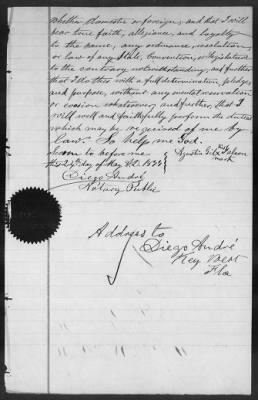 whether domestic or foreign, and that I will
bear true faith, allegiance, and loyalty
to the same, any ordinance, resolution,
or law of any State, Convention, or Legislature
to the contrary, notwithstanding; and further
that I do this with a full determination, pledge,
and purpose, without any mental reservation
or evasion whatsoever; and further, that I
will well and faithfully perform the duties
which may be required of me by
law. So help me God.
Sworn to before me
the day of May A.D.
his
mark
Diego André
Notary Public
Address to
Diego André
Key West
Fla